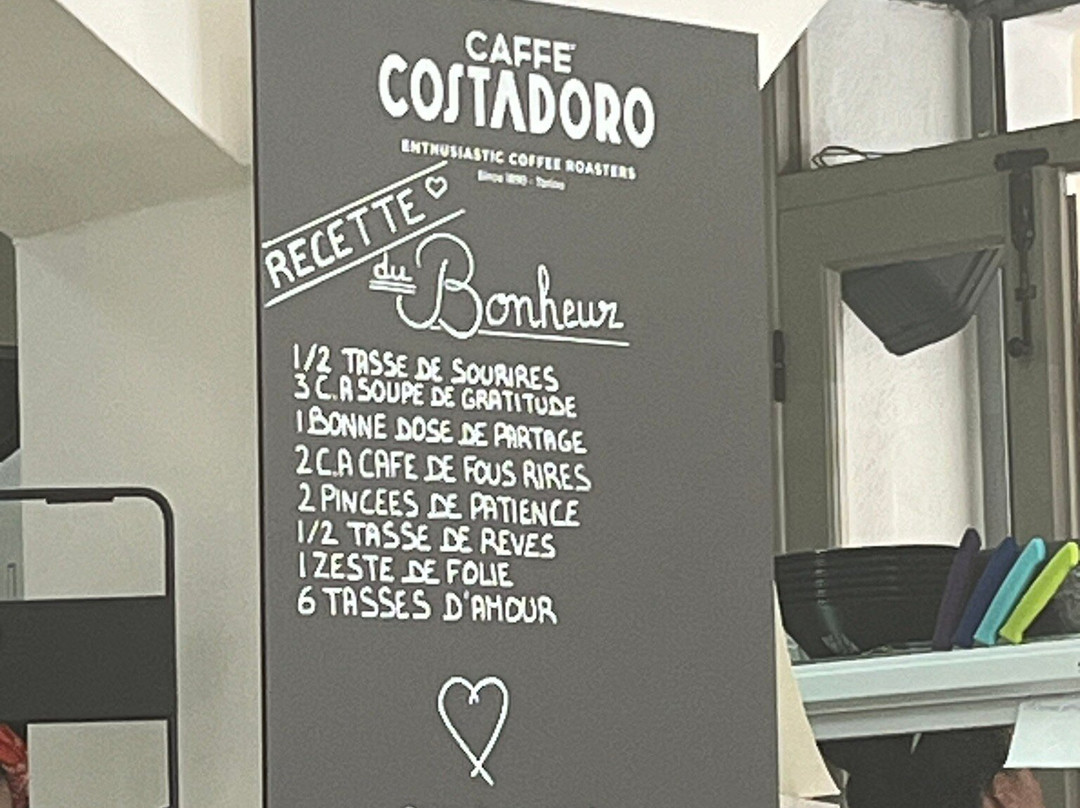 CAFFÈ
COSTADORO
ENTHUSIASTIC COFFEE ROASTERS
Since 1890 - Torino
RECETTE
du Bonheur
1/2 TASSE DE SOURIRES
3 C.A SOUPE DE GRATITUDE
1 BONNE DOSE DE PARTAGE
2 C.A CAFE DE FOUS RIRES
2 PINCEES DE PATIENCE
1/2 TASSE DE REVES
1 ZESTE DE FOLIE
6 TASSES D'AMOUR